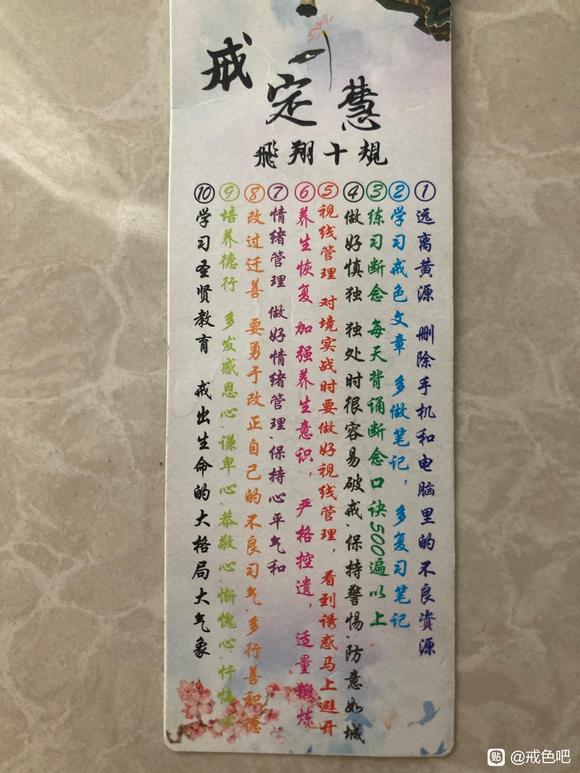 戒定慧
飛翔十規
①远离黄源 删除手机和电脑里的不良资源
②学习戒色文章 多做笔记，多复习笔记
③练习断念 每天背诵断念口诀500遍以上
④做好慎独 独处时很容易破戒、保持警惕、防意如城
⑤视线管理 对境实战时要做好视线管理，看到诱惑马上避开
⑥养生恢复 加强养生意识，严格控遗，适量锻炼
⑦情绪管理 做好情绪管理、保持心平气和
⑧改过迁善 要勇于改正自己的不良习气、多行善积德
⑨培养德行 多发感恩心、谦卑心、恭敬心、惭愧心、忏悔
⑩学习圣贤教育 戒出生命的大格局大气象
贴 @戒色吧